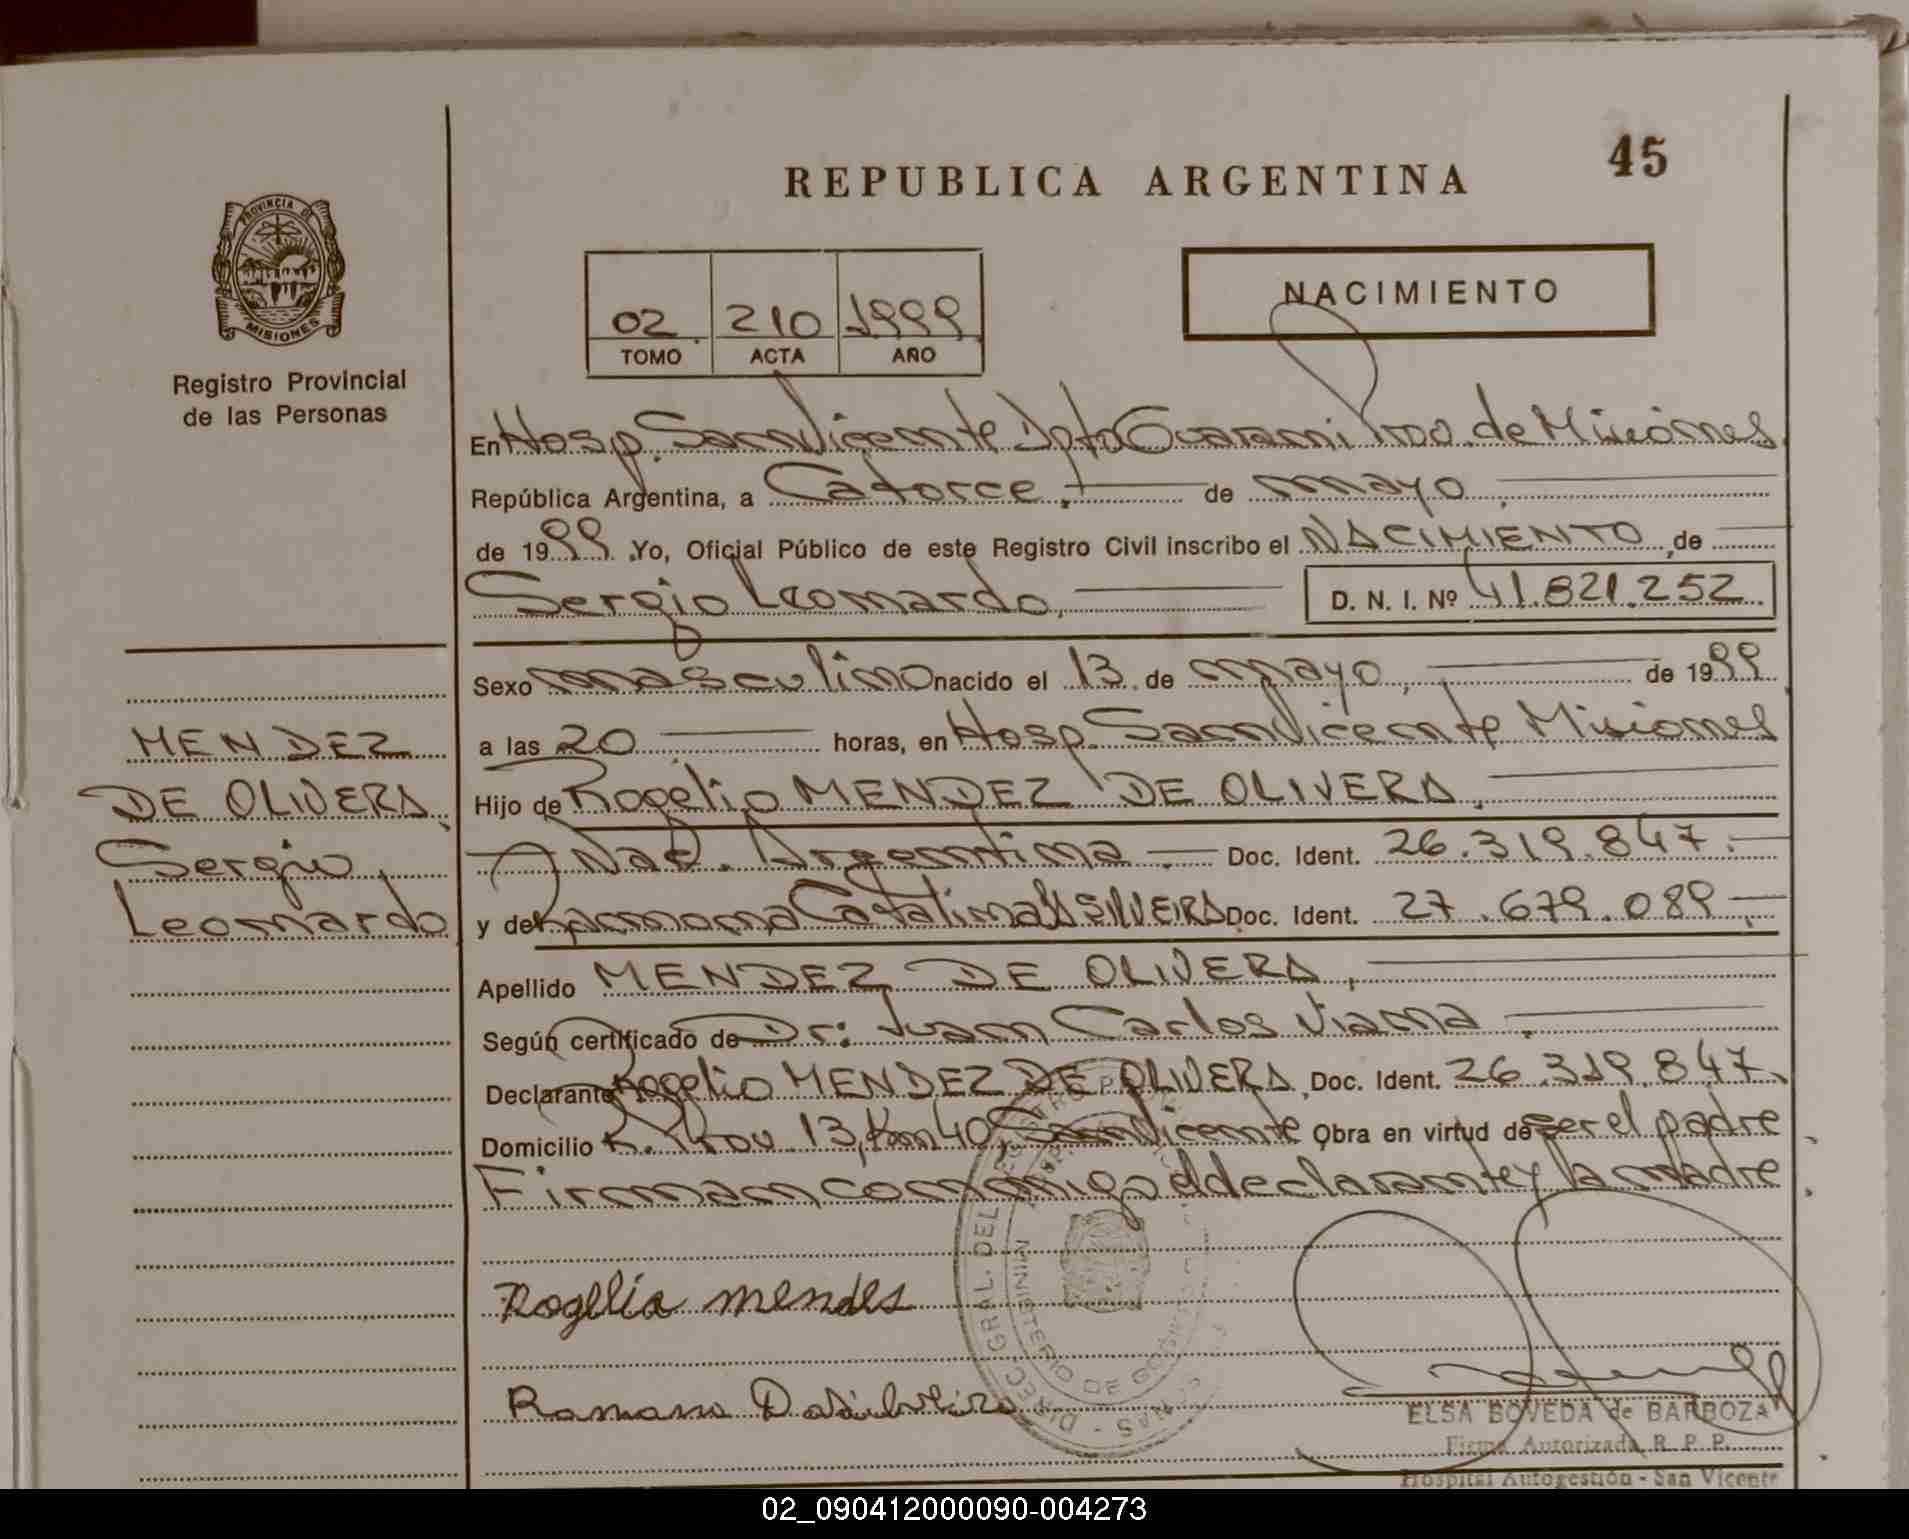 45
REPUBLICA ARGENTINA
PROVINCIA DE
MISIONES
Registro Provincial
de las Personas
02 210 1999
TOMO ACTA AÑO
NACIMIENTO
En Hosp. San Vicente Dpto Guarani Prov. de Misiones
República Argentina, a Catorce, de mayo,
de 1999. Yo, Oficial Público de este Registro Civil inscribo el NACIMIENTO, de
Sergio Leonardo, D. N. I. Nº 41.821.252
Sexo masculino nacido el 13 de mayo, de 1999
a las 20 horas, en Hosp. San Vicente Misiones
Hijo de Rogelio MENDEZ DE OLIVERA,
Nac. Argentina Doc. Ident. 26.319.847.
y de Ramona Catalina DA SILVEIRA Doc. Ident. 27.679.089
Apellido MENDEZ DE OLIVERA,
Según certificado de Dr: Juan Carlos Viana
Declarante Rogelio MENDEZ DE OLIVERA, Doc. Ident. 26.319.847.
Domicilio R. Prov. 13, Km 40, San Vicente Obra en virtud de ser el padre
Firman conmigo el declarante y la madre
MENDEZ
DE OLIVERA
Sergio
Leonardo
Rogelio mendes
Ramona
DIREC. GRAL. DEL REGISTRO P
MINISTERIO DE GOBIERNO
ELSA BOVEDA de BARBOZA
Firma Autorizada R. P. P.
Hospital Autogestión - San Vicente
02_090412000090-004273